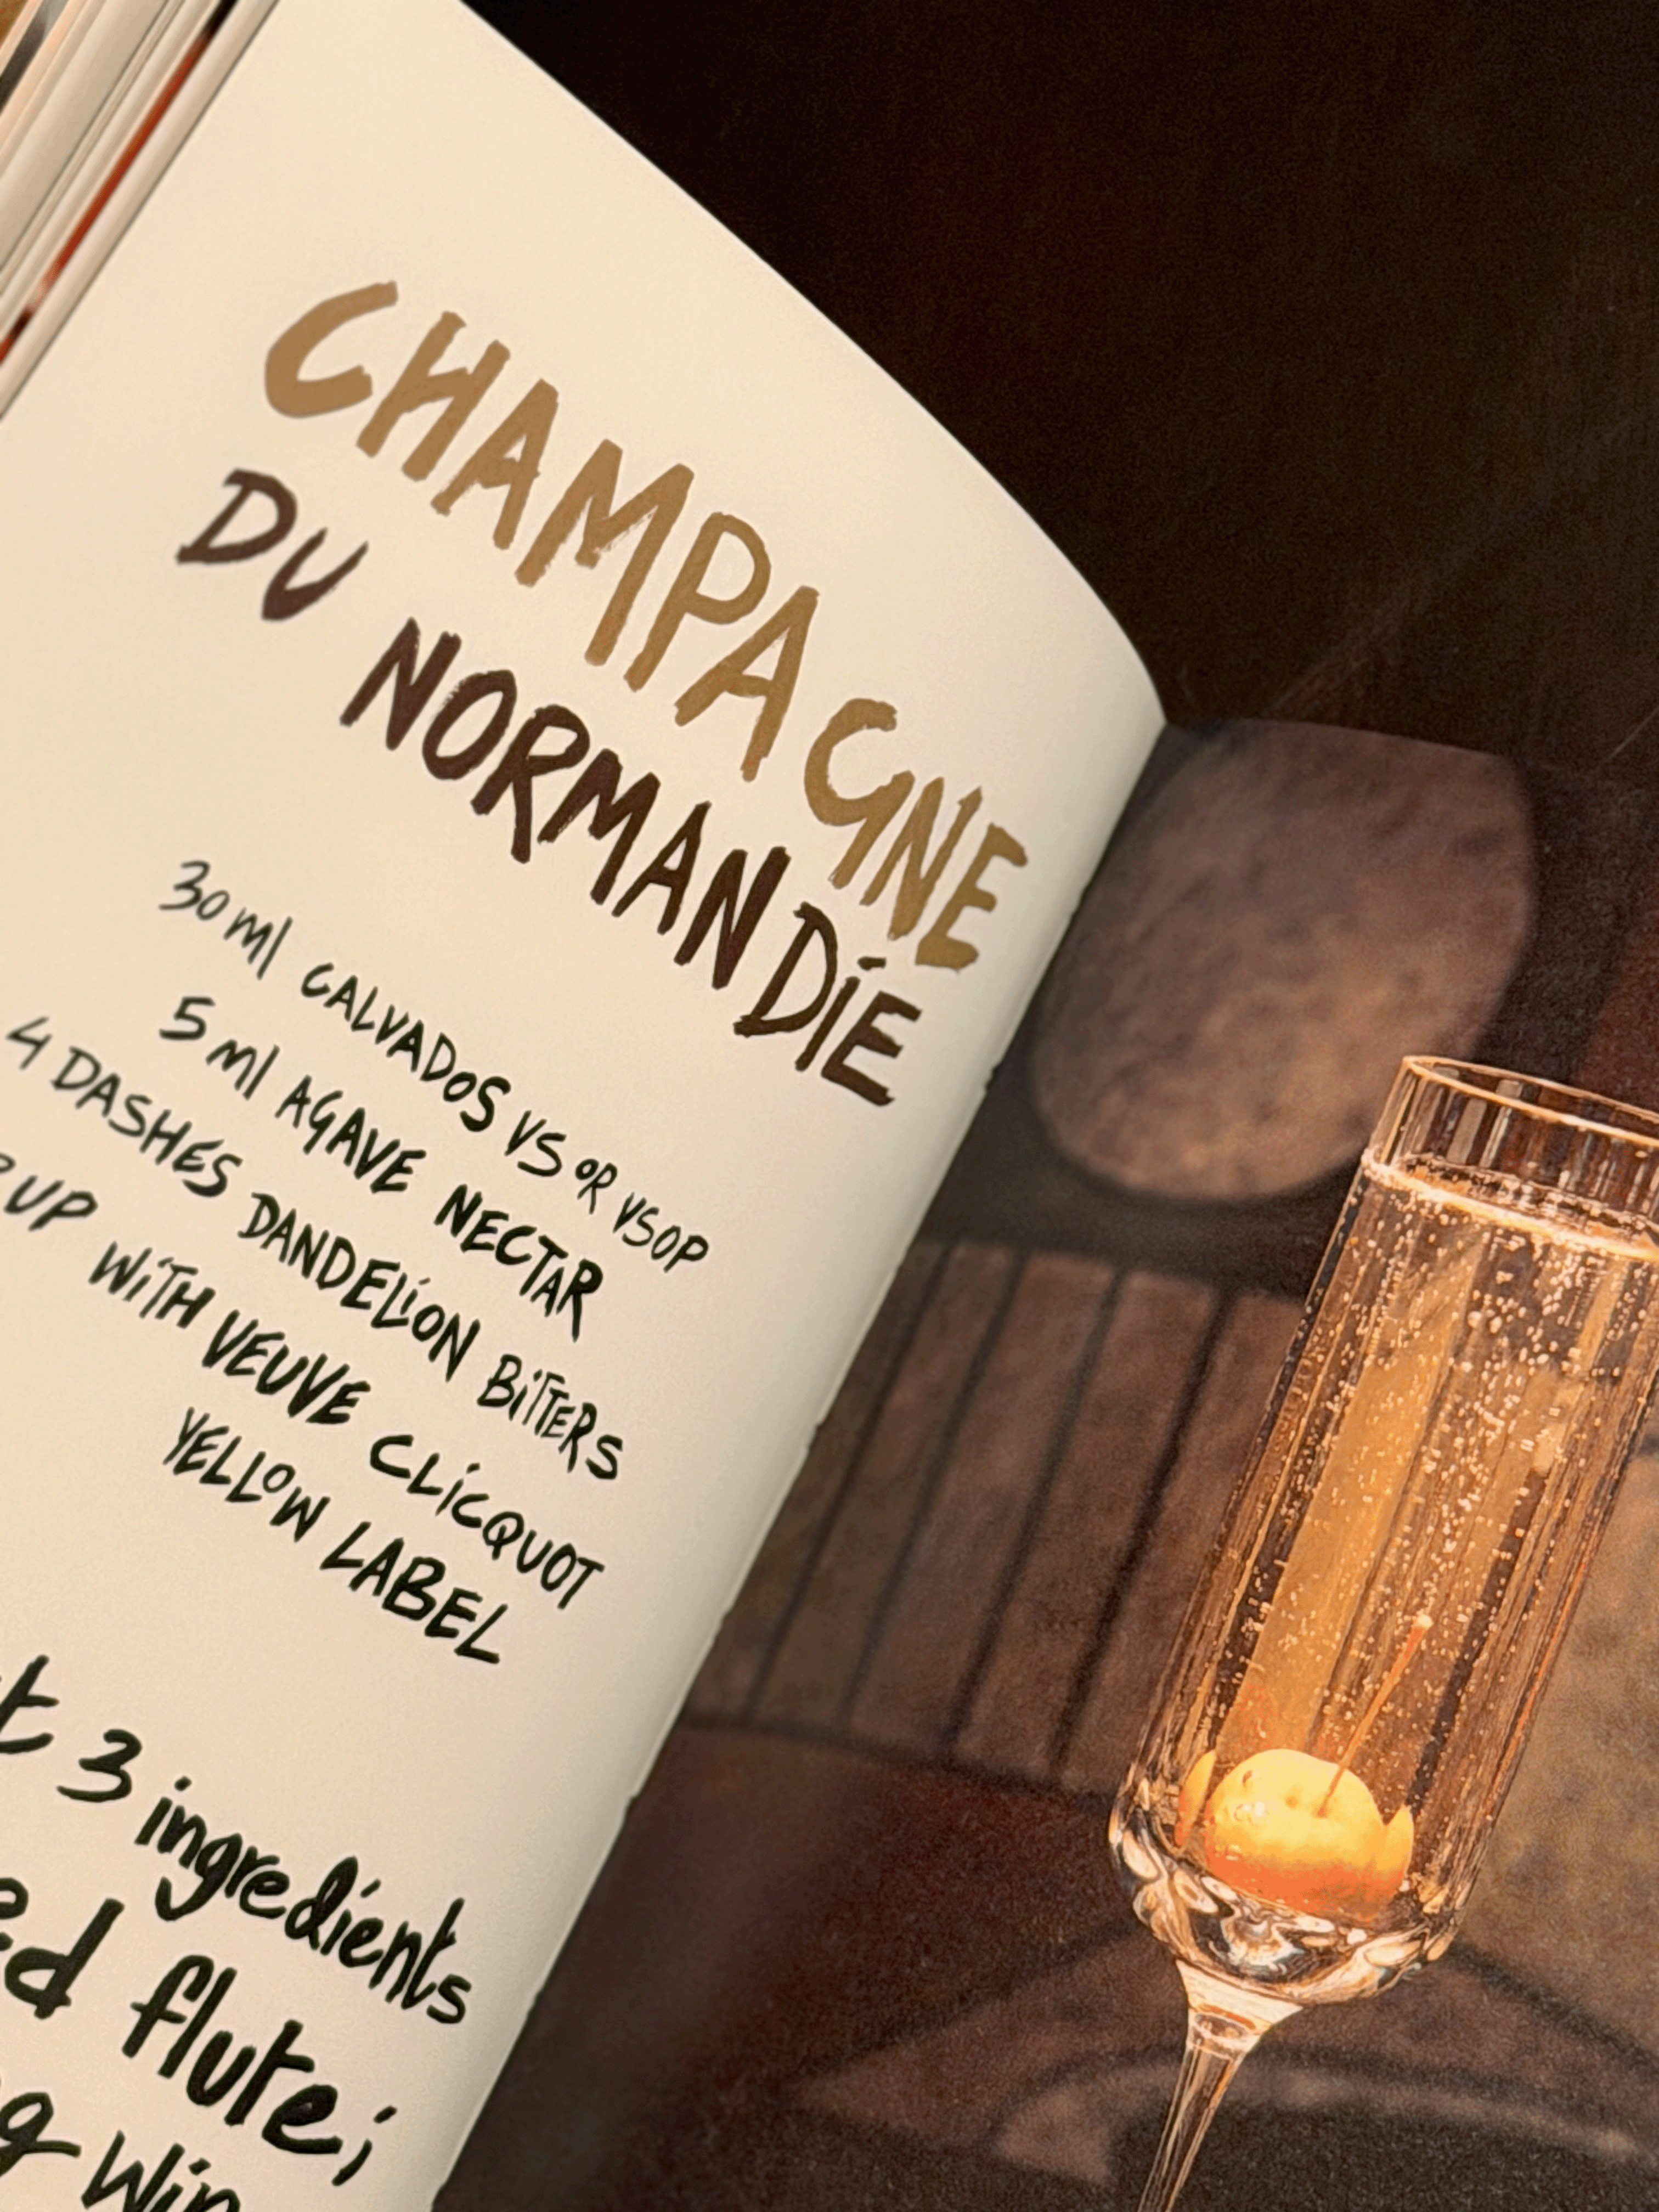 CHAMPAGNE
DU NORMANDIE
30 ml CALVADOS VS OR VSOP
5 ml AGAVE NECTAR
4 DASHES DANDELION BITTERS
UP WITH VEUVE CLICQUOT
YELLOW LABEL
3 ingredients
flute;